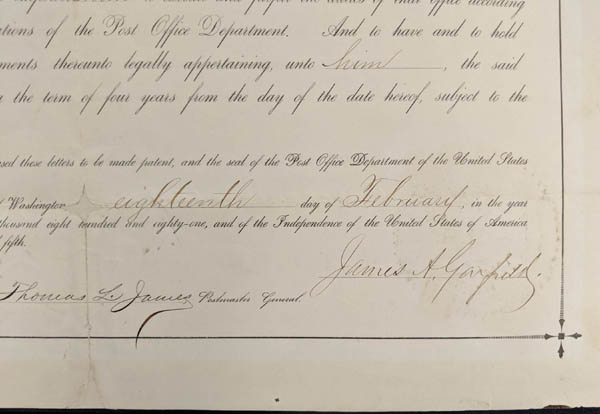 to execute and fulfil the duties of that office according
ations of the Post Office Department. And to have and to hold
ments thereunto legally appertaining, unto him, the said
the term of four years from the day of the date hereof, subject to the
sed these letters to be made patent, and the seal of the Post Office Department of the United States
Washington eighteenth day of February, in the year
thousand eight hundred and eighty-one, and of the Independence of the United States of America
fifth.
James A. Garfield.
Thomas L. James Postmaster General.